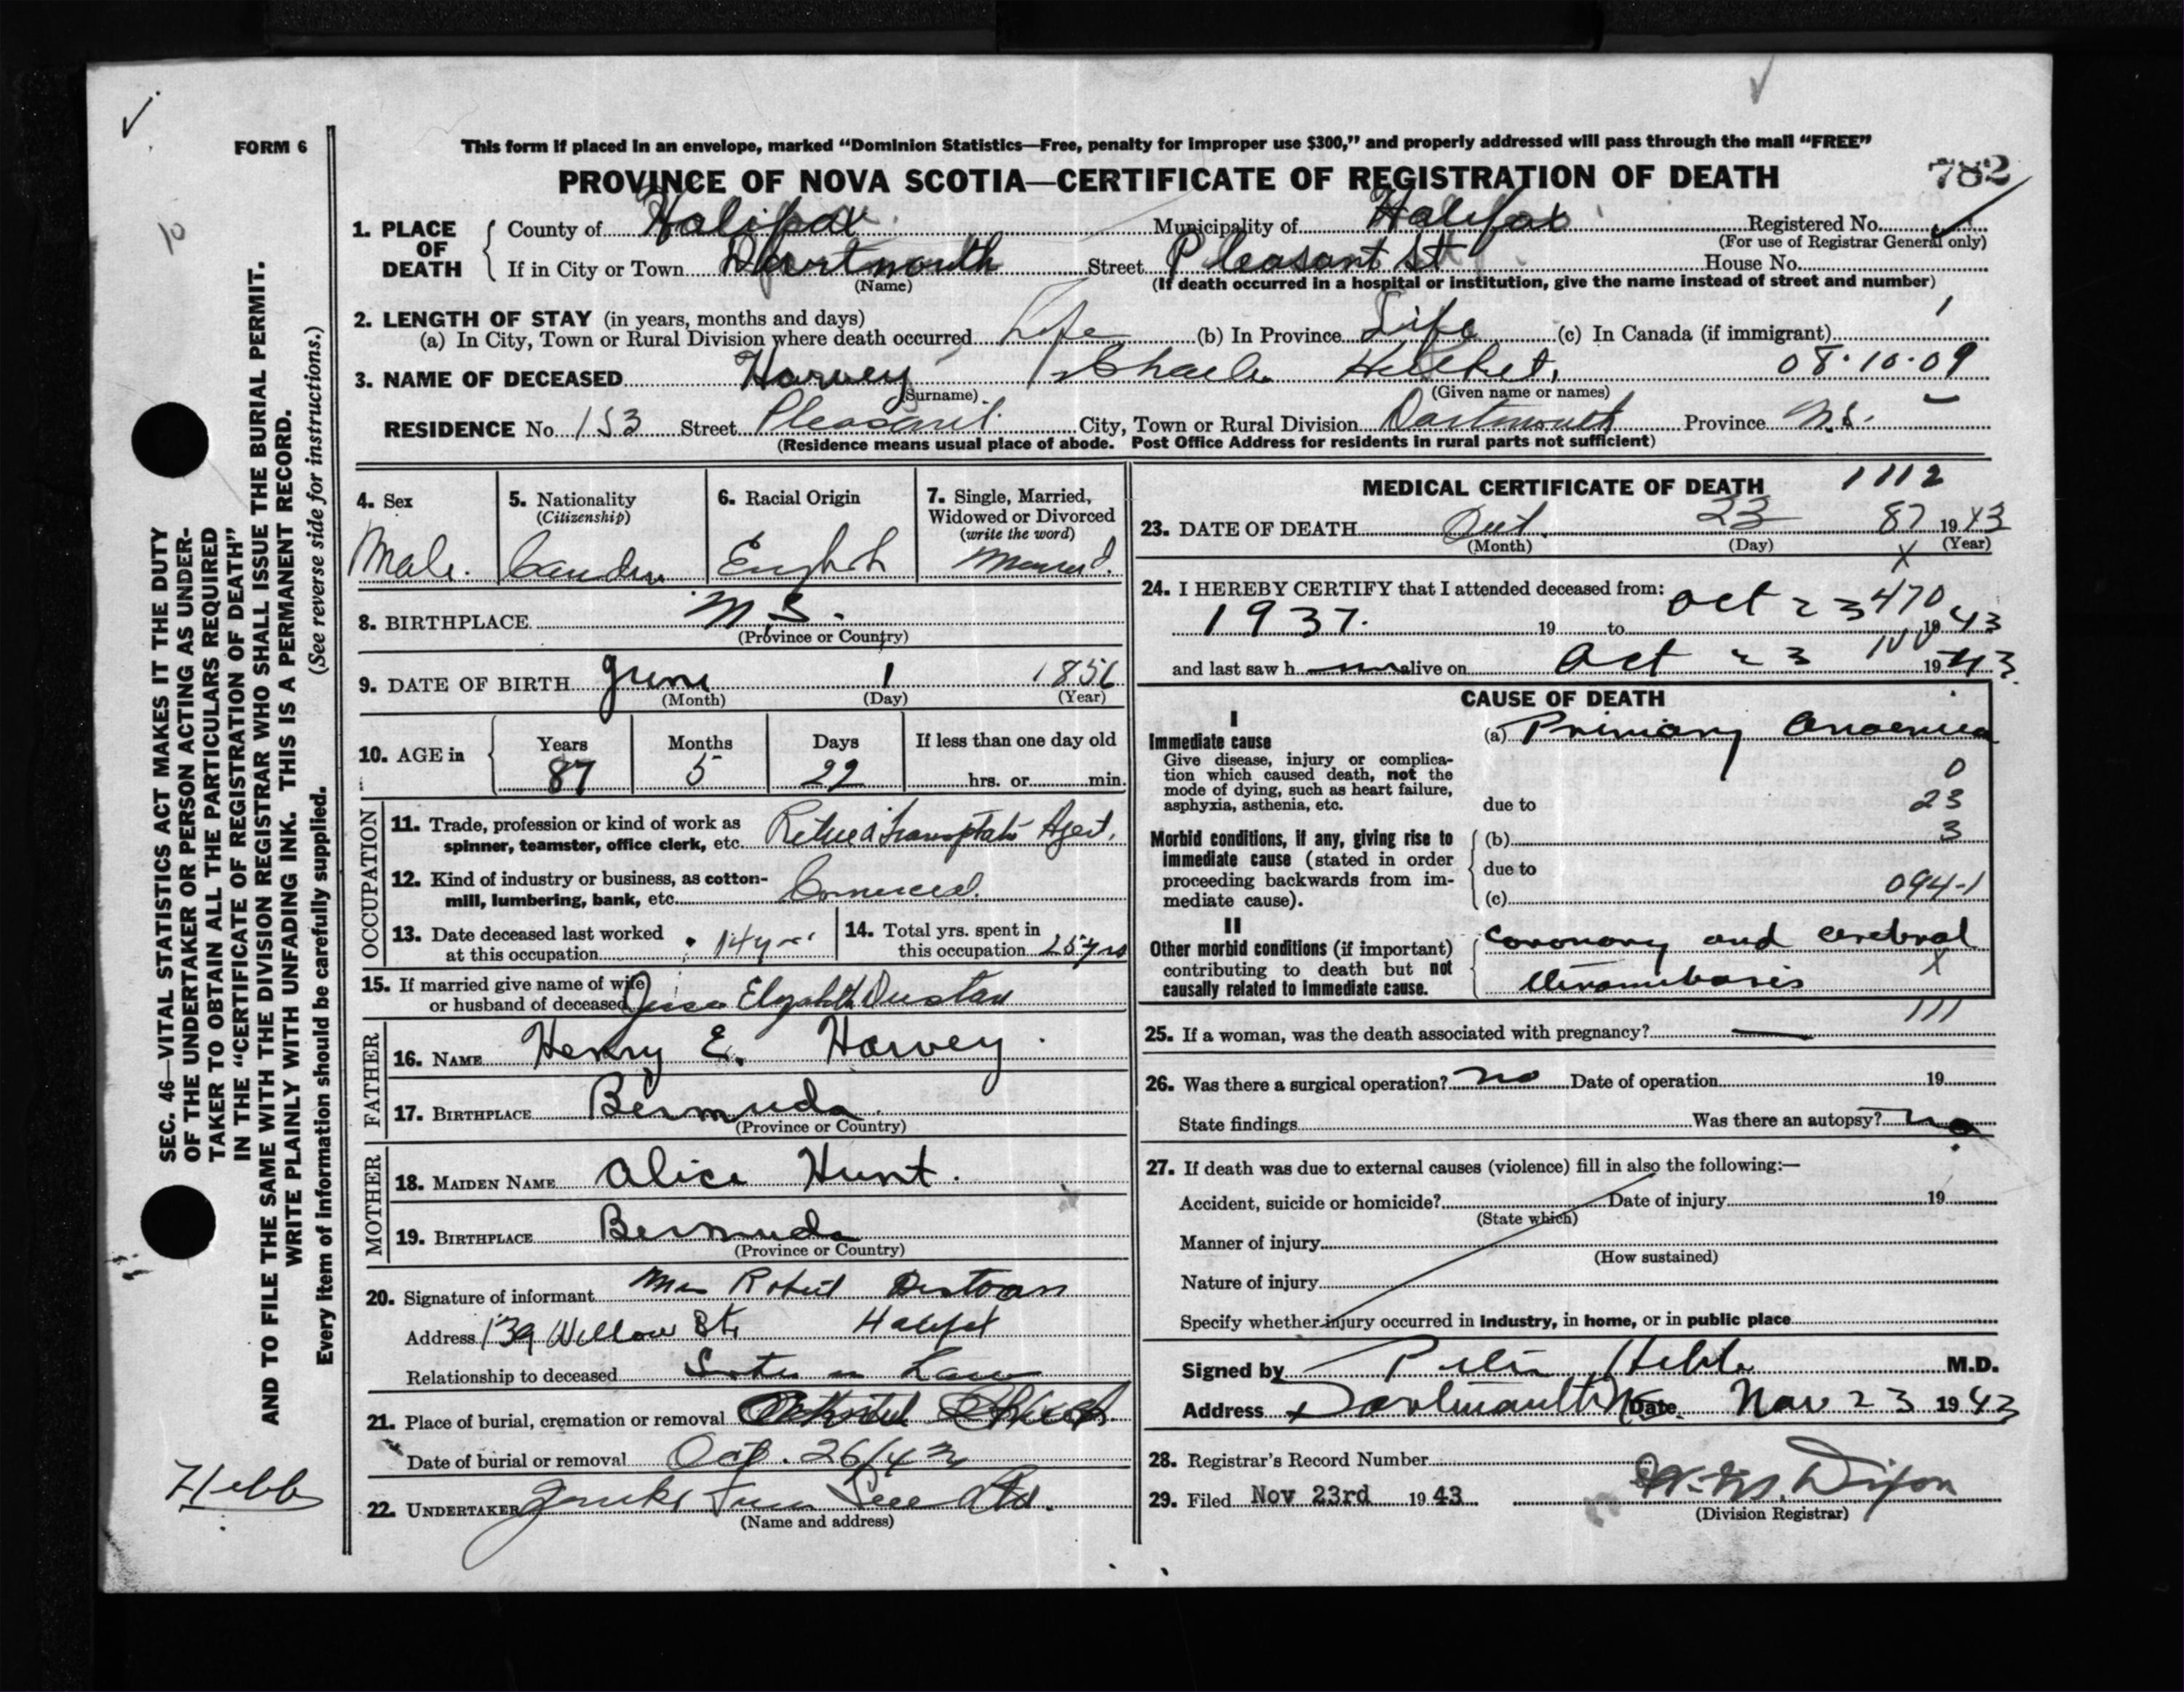 FORM 6
This form if placed in an envelope, marked “Dominion Statistics—Free, penalty for improper use $300,” and properly addressed will pass through the mail “FREE”
PROVINCE OF NOVA SCOTIA—CERTIFICATE OF REGISTRATION OF DEATH
782
1. PLACE OF DEATH County of Halifax Municipality of Halifax Registered No.
(For use of Registrar General only)
If in City or Town Dartmouth Street Pleasant St House No.
(Name) (If death occurred in a hospital or institution, give the name instead of street and number)
2. LENGTH OF STAY (in years, months and days)
(a) In City, Town or Rural Division where death occurred Life (b) In Province Life (c) In Canada (if immigrant)
3. NAME OF DECEASED Harvey Charles 08·10·09
(Surname) (Given name or names)
RESIDENCE No. 153 Street Pleasant City, Town or Rural Division Dartmouth Province N.S.
(Residence means usual place of abode. Post Office Address for residents in rural parts not sufficient)
4. Sex
Male.
5. Nationality
(Citizenship)
6. Racial Origin
English
7. Single, Married,
Widowed or Divorced
(write the word)
Married.
8. BIRTHPLACE N.S.
(Province or Country)
9. DATE OF BIRTH June 1 1856
(Month) (Day) (Year)
10. AGE in Years Months Days If less than one day old
87 5 22 hrs. or min.
OCCUPATION
11. Trade, profession or kind of work as
spinner, teamster, office clerk, etc. Agent.
12. Kind of industry or business, as cotton-
mill, lumbering, bank, etc.
13. Date deceased last worked
at this occupation 14 yrs
14. Total yrs. spent in
this occupation 25 yrs
15. If married give name of wife
or husband of deceased Elizabeth Dustan
FATHER
16. NAME Henry E. Harvey.
17. BIRTHPLACE Bermuda.
(Province or Country)
MOTHER
18. MAIDEN NAME Alice Hunt.
19. BIRTHPLACE Bermuda
(Province or Country)
20. Signature of informant Mrs Robert
Address 139 Willow St. Halifax
Relationship to deceased Sister in Law
21. Place of burial, cremation or removal
Date of burial or removal Oct. 26/43
22. UNDERTAKER Ltd.
(Name and address)
MEDICAL CERTIFICATE OF DEATH 1112
23. DATE OF DEATH Oct. 23 87 1943
(Month) (Day) (Year)
X
24. I HEREBY CERTIFY that I attended deceased from:
1937. 19 to Oct 23 470 1943
and last saw h im alive on Oct 23 1943
CAUSE OF DEATH
I
Immediate cause
Give disease, injury or complica-
tion which caused death, not the
mode of dying, such as heart failure,
asphyxia, asthenia, etc.
(a) Primary anaemia
0
due to 23
Morbid conditions, if any, giving rise to
immediate cause (stated in order
proceeding backwards from im-
mediate cause).
(b) 3
due to
(c) 094-1
II
Other morbid conditions (if important)
contributing to death but not
causally related to immediate cause.
coronary and cerebral
X
111
25. If a woman, was the death associated with pregnancy?
26. Was there a surgical operation? no Date of operation 19
State findings Was there an autopsy? no
27. If death was due to external causes (violence) fill in also the following:—
Accident, suicide or homicide? Date of injury 19
(State which)
Manner of injury
(How sustained)
Nature of injury
Specify whether injury occurred in industry, in home, or in public place
Signed by Hebb M.D.
Address Dartmouth NS Date Nov 23 1943
28. Registrar's Record Number
29. Filed Nov 23rd 1943 Dixon
(Division Registrar)
SEC. 46—VITAL STATISTICS ACT MAKES IT THE DUTY
OF THE UNDERTAKER OR PERSON ACTING AS UNDER-
TAKER TO OBTAIN ALL THE PARTICULARS REQUIRED
IN THE “CERTIFICATE OF REGISTRATION OF DEATH”
AND TO FILE THE SAME WITH THE DIVISION REGISTRAR WHO SHALL ISSUE THE BURIAL PERMIT.
WRITE PLAINLY WITH UNFADING INK. THIS IS A PERMANENT RECORD.
Every item of information should be carefully supplied. (See reverse side for instructions.)
10
Hebb